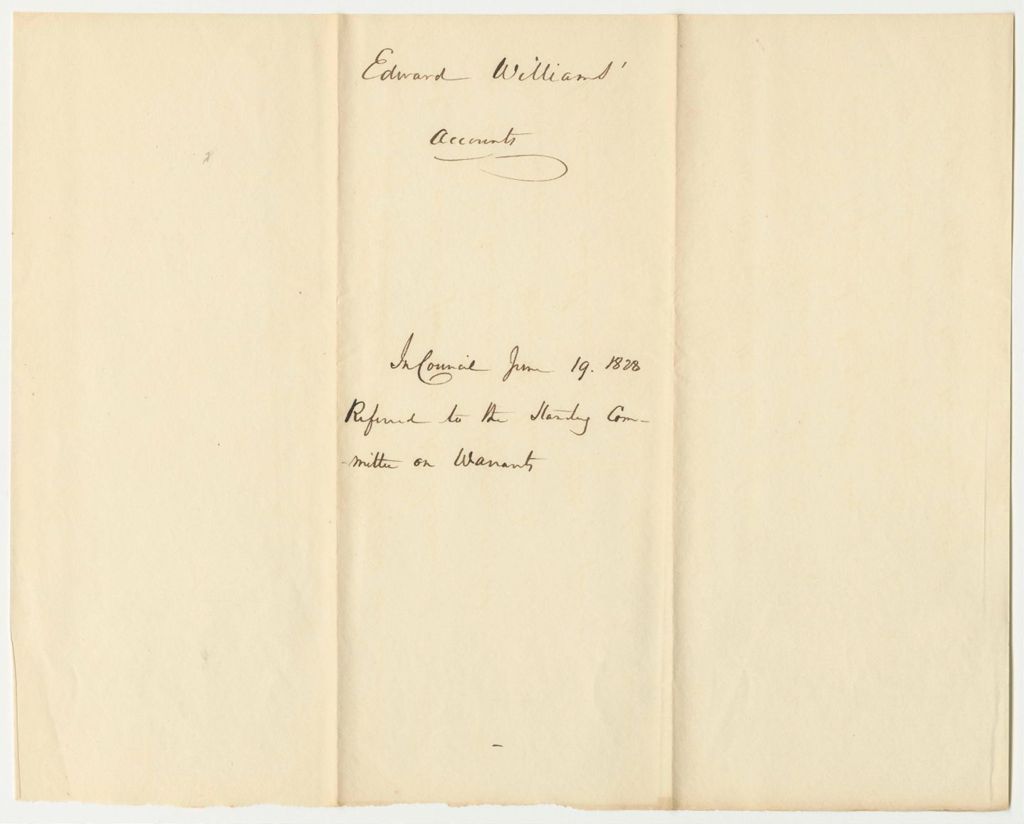 Edward Williams'
Accounts
In Council June 19. 1828
Referred to the Standing Com-
-mittee on Warrants